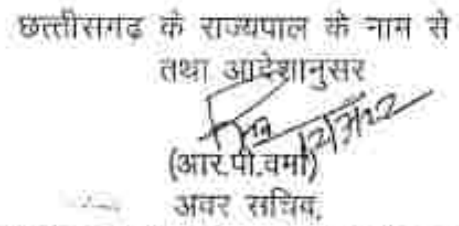 छत्तीसगढ़ के राज्यपाल के नाम से
तथा आदेशानुसर
12/3/12
(आर.पी.वर्मा)
अवर सचिव,